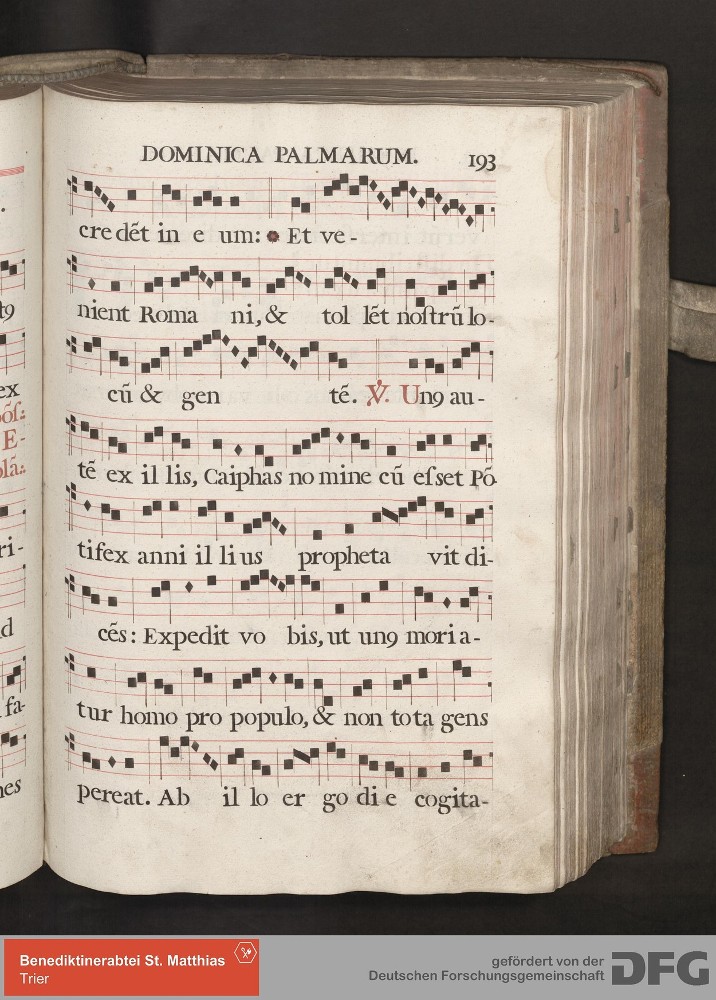 DOMINICA PALMARUM. 193
cre dẽt in e um: Et ve -
nient Roma ni, & tol lẽt noſtrũ lo-
cũ & gen tẽ. ℣. Unꝯ au -
tẽ ex il lis, Caiphas no mine cũ eſset Põ-
tifex anni il li us propheta vit di-
cẽs: Expedit vo bis, ut unꝯ mori a-
tur homo pro populo, & non tota gens
pereat. Ab il lo er go di e cogita-
tꝯ
ex
põſ:
E-
plã:
ri-
d
fa-
nes
Benediktinerabtei St. Matthias
Trier
gefördert von der
Deutschen Forschungsgemeinschaft
DFG